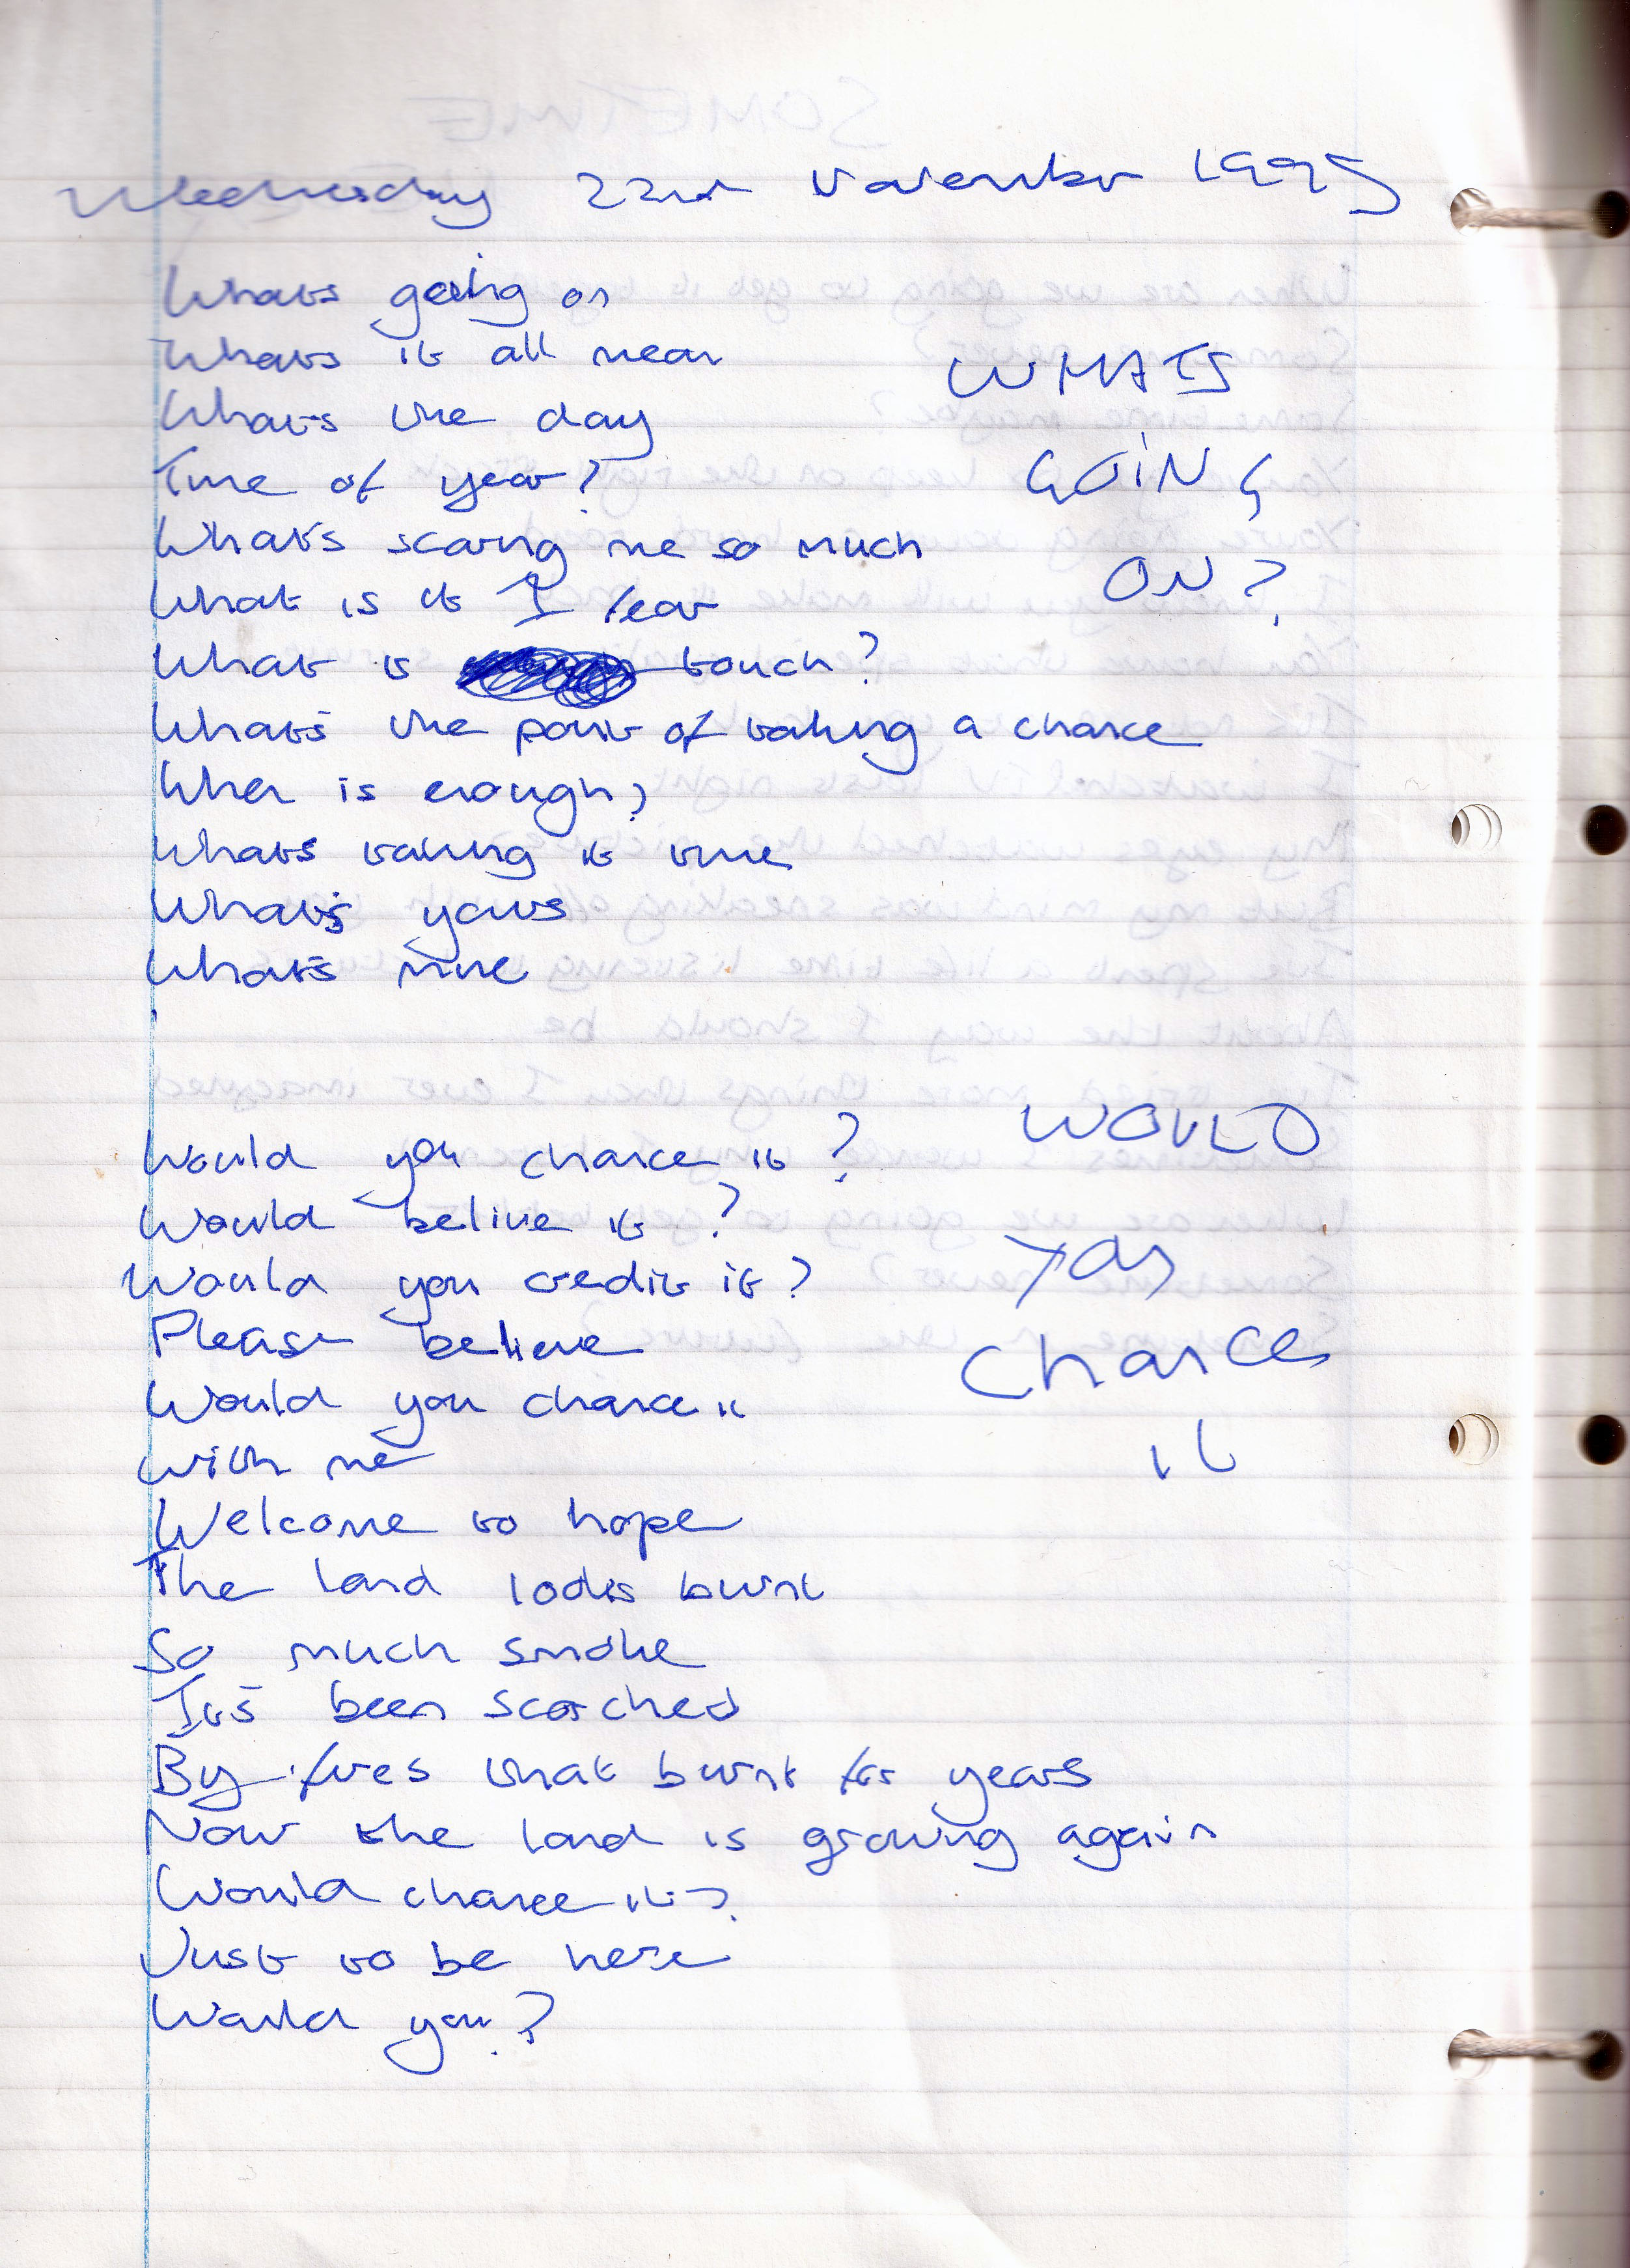 Wednesday 22nd November 1995
Whats going on
Whats it all mean
Whats the day
Time of year?
What's scaring me so much
What is it I fear
What is touch?
What's the point of taking a chance
When is enough?
Whats taking it time
What's yours
What's mine
WHATS
GOING
ON?
Would you chance it?
Would belive it?
Would you credit it?
Please believe
Would you chance it
with me
Welcome to hope
The land looks burnt
So much smoke
It's been scorched
By fires that burnt for years
Now the land is growing again
Would chance it?
Just to be here
Would you?
WOULD
You
Chance
it